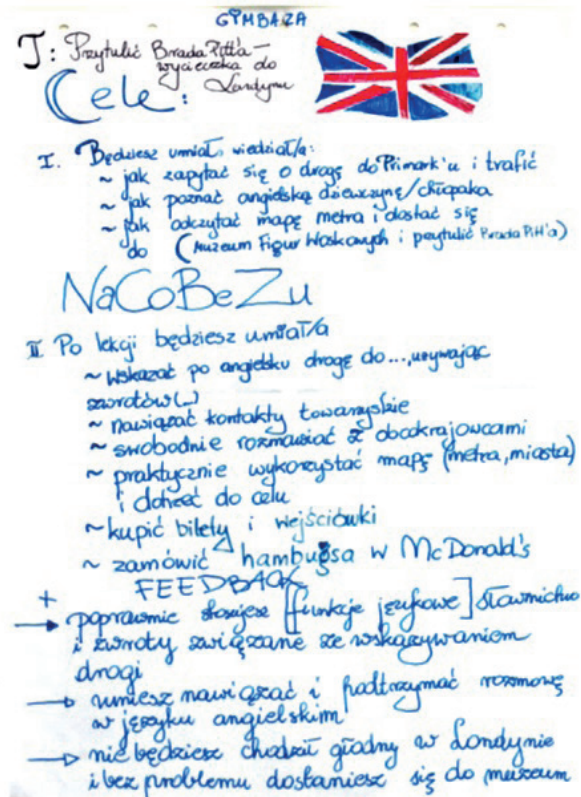 GIMBAZA
T: Przytulić Brada Pitt'a –
wycieczka do
Londynu
Cele:
I. Będziesz umiał, wiedział/a:
~ jak zapytać się o drogę do Primark'u i trafić
~ jak poznać angielską dziewczynę/chłopaka
~ jak odczytać mapę metra i dostać się
do (Muzeum Figur Woskowych i przytulić Brada Pitt'a)
NaCoBeZu
II Po lekcji będziesz umiał/a
~ wskazać po angielsku drogę do..., używając
zwrotów (...)
~ nawiązać kontakty towarzyskie
~ swobodnie rozmawiać z obcokrajowcami
~ praktycznie wykorzystać mapę (metra, miasta)
i dotrzeć do celu
~ kupić bilety i wejściówki
~ zamówić hambugsa w McDonald's
FEEDBACK
+
→ poprawnie stosujesz [funkcje językowe] słownictwo
i zwroty związane ze wskazywaniem
drogi
→ umiesz nawiązać i podtrzymać rozmowę
w języku angielskim
→ nie będziesz chodził głodny w Londynie
i bez problemu dostaniesz się do muzeum